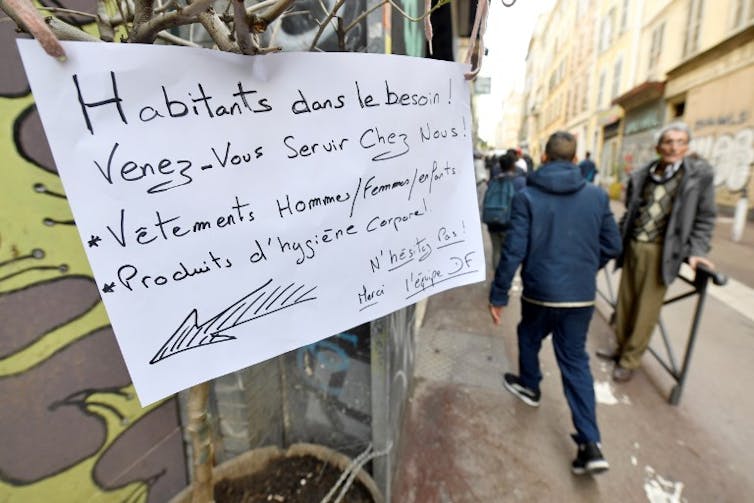 Habitants dans le besoin !
Venez-Vous Servir Chez Nous !
* Vêtements Hommes/Femmes/enfants.
* Produits d'hygiène corporel !
N'hésitez Pas !
Merci l'équipe